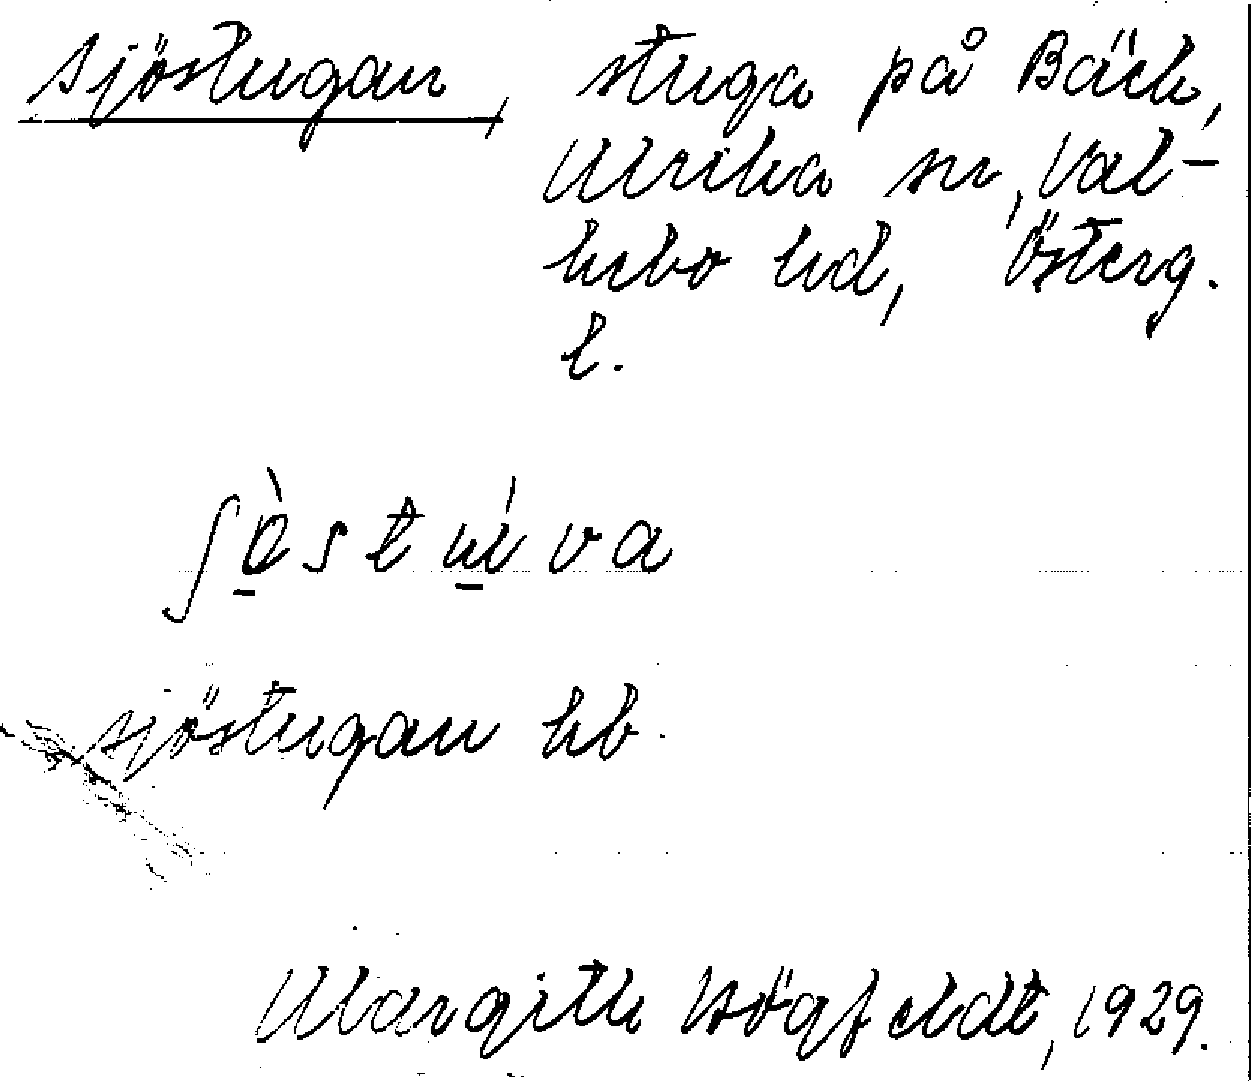 sjöstugan, stuga på Bäck,
Ulrika sn, Val-
kebo hd, Österg.
l.
sjöstugan hb.
Margith Högfeldt, 1929.